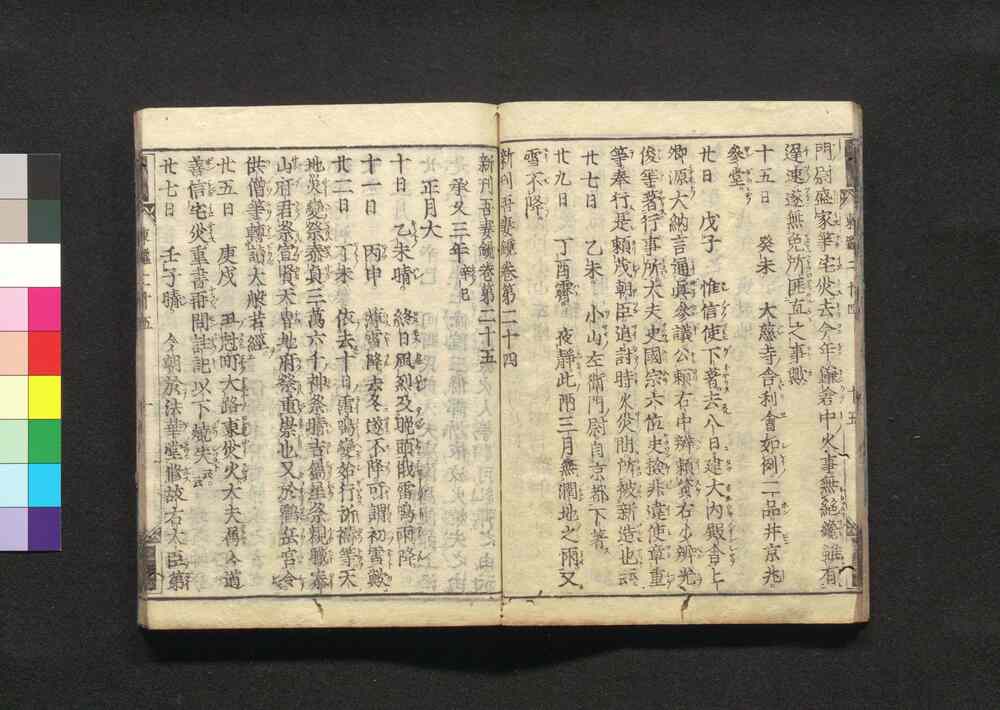 門尉盛家等宅災去今年鎌倉中火事無絶纔雖有
遅速遂無免所匪直之事歟
十五日　癸未　大慈寺舎利會如例二品并京兆
參堂
廿日　戊子　惟信使下著去八日建大内殿舎上
卿源大納言通具參議公頼右中辨頼資右少辨光
俊等著行事所大夫史國宗六位史検非違使章重
等奉行是頼茂朝臣追討時火災間所被新造也云云
廿七日　乙未　小山左衛門尉自京都下著
廿九日　丁酉霽　夜靜此両三月無潤地之雨又
雪不降
新刊吾妻鏡巻第二十四
新刊吾妻鏡巻第二十五
承久三年辛巳
正月大
十日　乙未晴　終日風烈及晩頭俄雷鳴雨降
十一日　丙申　沸雪降去冬遂不降可謂初雪歟
廿二日　丁未　依去十日雷鳴變始行祈禱等天
地災變祭泰貞三萬六千神祭晴吉属星祭親職泰
山府君祭宣賢天曹地府祭重宗也又於鶴岳宮令
供僧等轉讀大般若經
廿五日　庚戌　丑尅町大路東災火大夫属入道
善信宅災重書并問註記以下焼失云云
廿七日　壬子晴　今朝於法華堂修故右大臣第